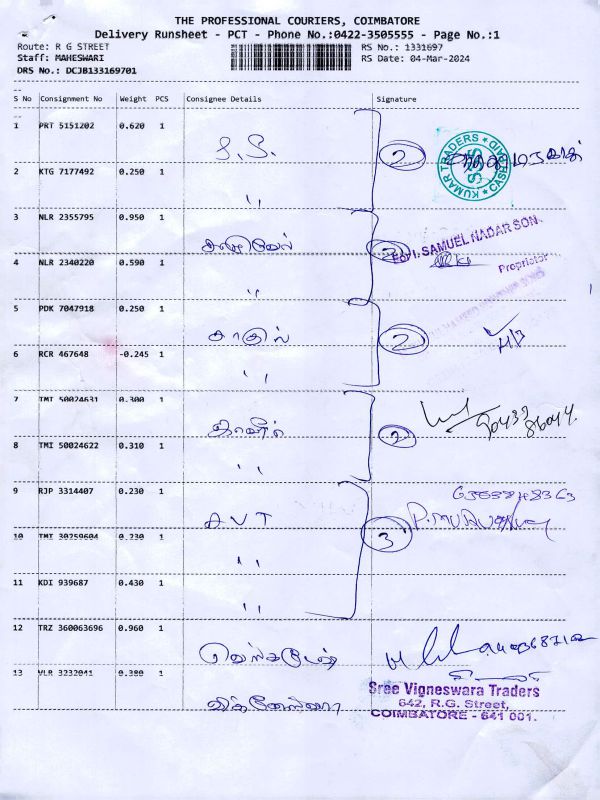 THE PROFESSIONAL COURIERS, COIMBATORE
Delivery Runsheet - PCT - Phone No.:0422-3505555 - Page No.:1
Route: R G STREET RS No.: 1331697
Staff: MAHESWARI RS Date: 04-Mar-2024
DRS No.: DCJB133169701
S No Consignment No Weight PCS Consignee Details Signature
1 PRT 5151202 0.620 1 S.S. 2
KUMAR TRADERS CASH PAID
2 KTG 7177492 0.250 1 "
3 NLR 2355795 0.950 1 2
For I. SAMUEL NADAR SON.
4 NLR 2340220 0.590 1 "
Proprietor
5 PDK 7047918 0.250 1 2
6 RCR 467648 -0.245 1 "
7 TMT 50024631 0.300 1
8 TMI 50024622 0.310 1 " 2
9 RJP 3314407 0.230 1 AVT
10 TMT 30259604 0.230 1 " 3
11 KDI 939687 0.430 1 "
12 TRZ 360063696 0.960 1 வெங்கடேஷ்
13 VLR 3232041 0.380 1 விக்னேஸ்வரா
Sree Vigneswara Traders
642, R.G. Street,
COIMBATORE - 641 001.